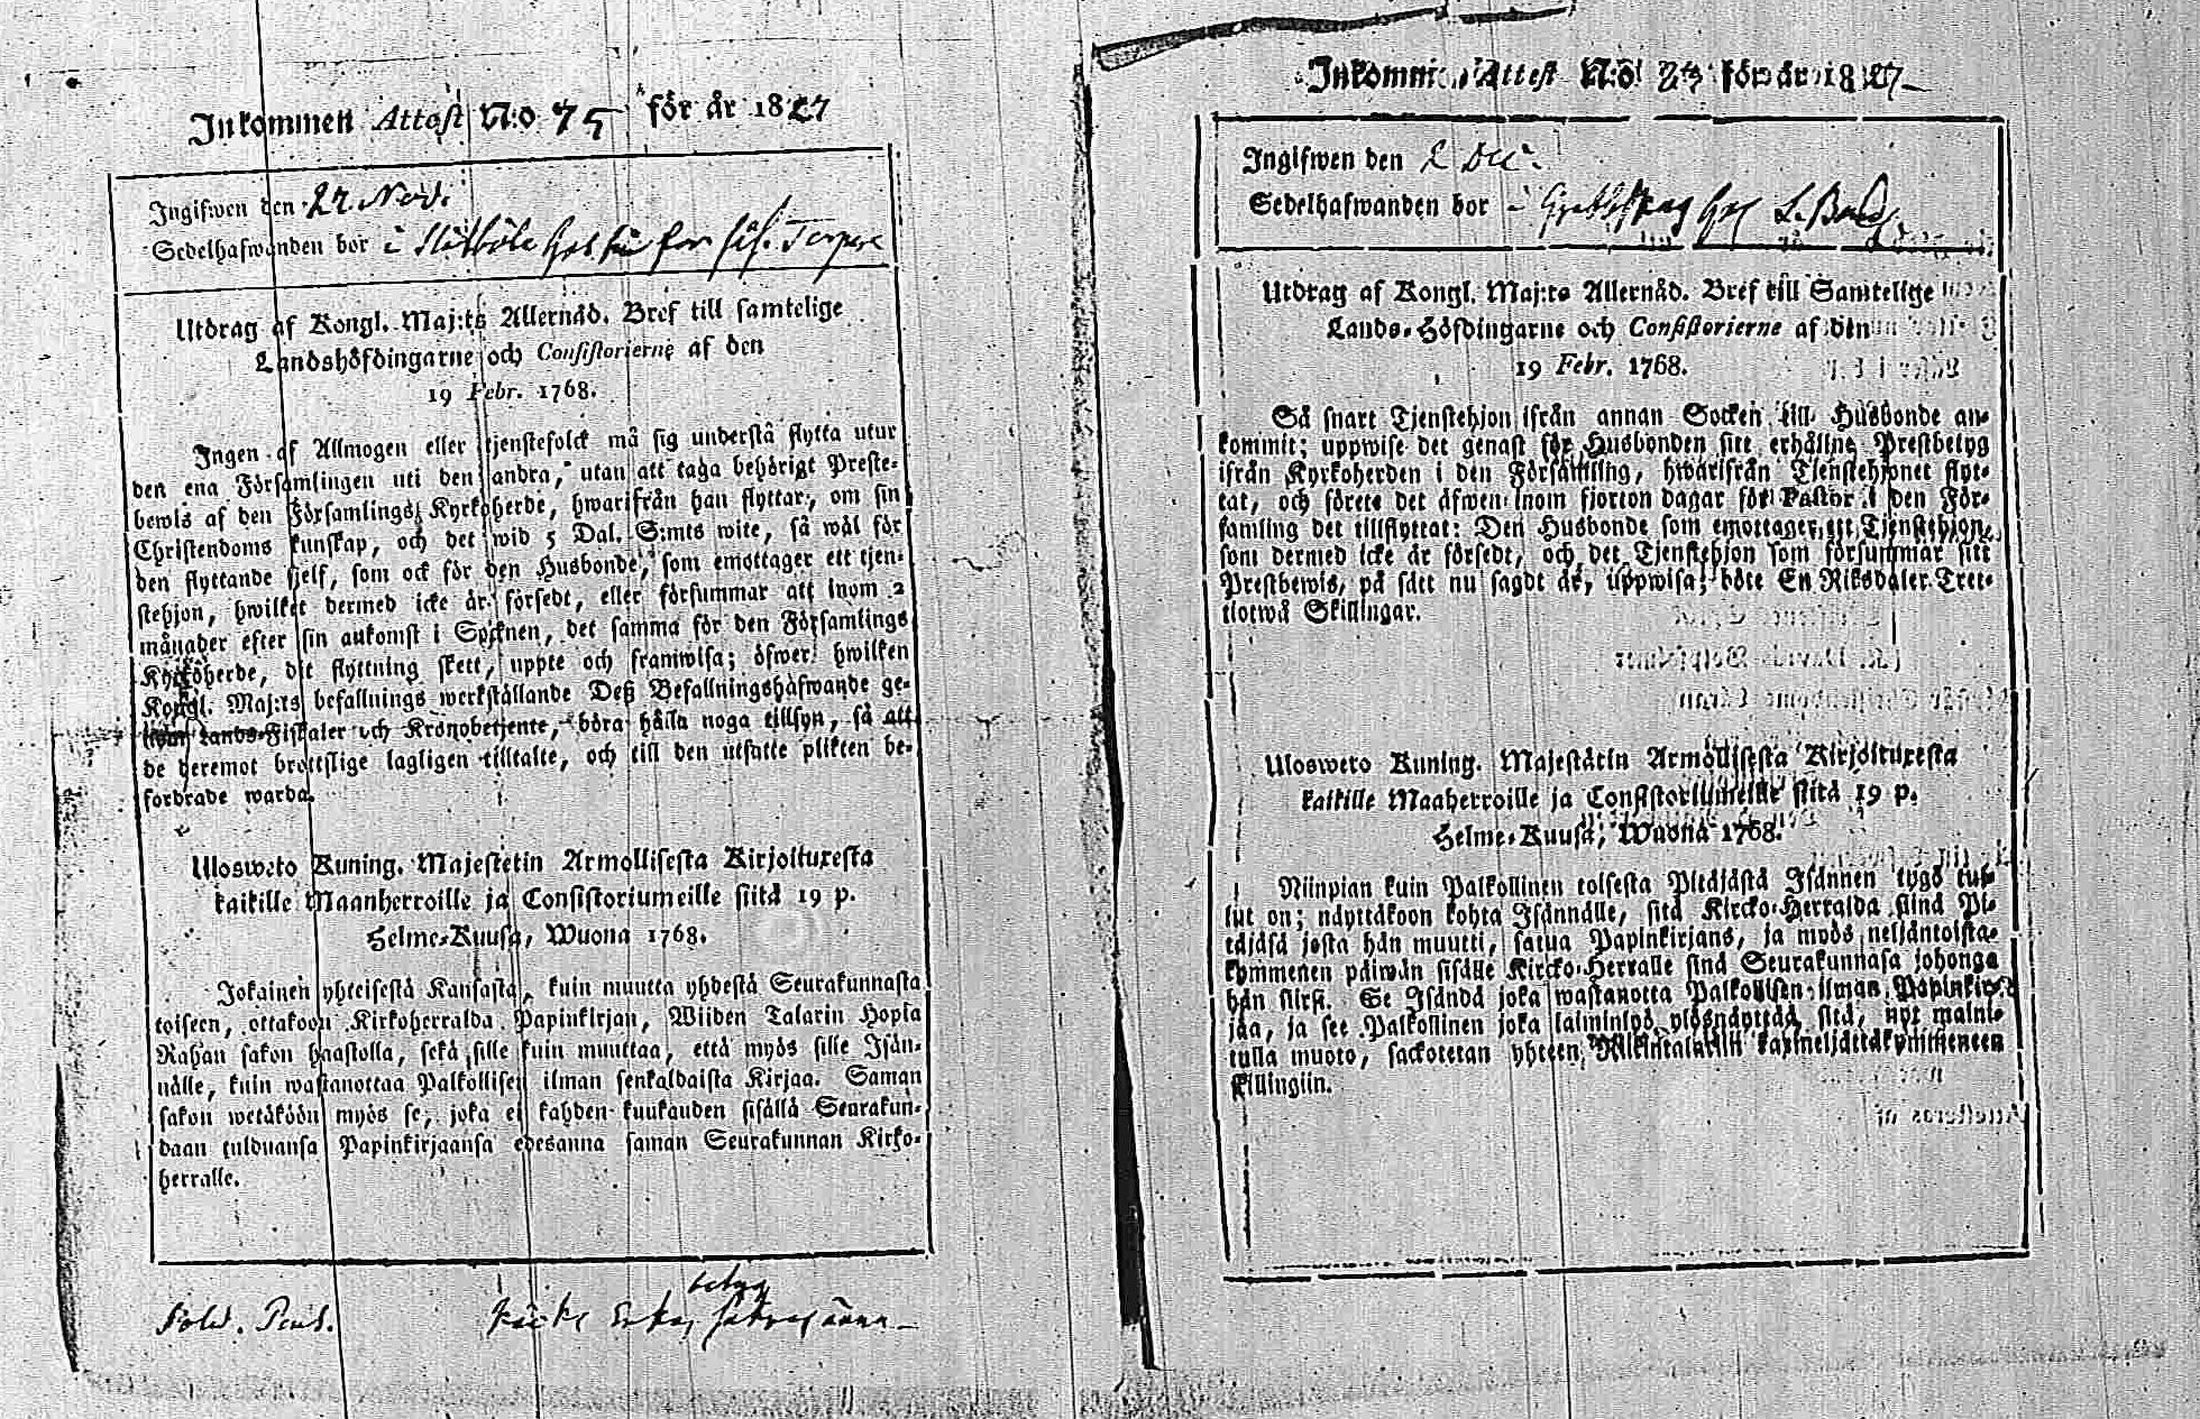 Inkommen Attest N:o 75 för år 1827
Ingifwen den 27. Nov.
Sedelhafwanden bor i
Utdrag af Kongl. Maj:ts Allernåd. Bref till samtelige
Landshöfdingarne och Consistorierne af den
19 Febr. 1768.
Ingen af Allmogen eller tjenstefolck må sig understå flytta utur
den ena Församlingen uti den andra, utan att taga behörigt Preste-
bewis af den Församlings Kyrkoherde, hwarifrån han flyttar, om sin
Christendoms kunskap, och det wid 5 Dal. S:mts wite, så wäl för
den flyttande sjelf, som ock för den Husbonde, som emottager ett tjen-
stehjon, hwilket dermed icke är försedt, eller försummar att inom 2
månader efter sin ankomst i Socknen, det samma för den Församlings
Kyrkoherde, dit flyttning skett, uppte och framwisa; öfwer hwilken
Kongl. Maj:ts befallnings werkställande Deß Befallningshafwande ge-
nom Lands-Fiskaler och Kronobetjente, böra hålla noga tillsyn, så att
de deremot brottslige lagligen tilltalte, och till den utsatte plikten be-
fordrade warda.
Ulosweto Kuning. Majestetin Armollisesta Kirjoituxesta
kaikille Maanherroille ja Consistoriumeille siitä 19 p.
Helme-Kuusa, Wuona 1768.
Jokainen yhteisestä Kansasta, kuin muutta yhdestä Seurakunnasta
toiseen, ottakoon Kirkoherralda Papinkirjan, Wiiden Talarin Hopia
Rahan sakon haastolla, sekä sille kuin muuttaa, että myös sille Isän-
nälle, kuin wastanottaa Palkollisen ilman senkaldaista Kirjaa. Saman
sakon wetäköön myös se, joka ei kahden kuukauden sisällä Seurakun-
daan tulduansa Papinkirjaansa edesanna saman Seurakunnan Kirko-
herralle.
Inkommen Attest N:o för år 1827
Ingifwen den 2 Dec.
Sedelhafwanden bor i
Utdrag af Kongl. Maj:ts Allernåd. Bref till Samtelige
Lands-Höfdingarne och Consistorierne af den
19 Febr. 1768.
Så snart Tjenstehjon ifrån annan Socken till Husbonde an-
kommit; uppwise det genast för Husbonden sitt erhållne Prestbetyg
ifrån Kyrkoherden i den Församling, hwarifrån Tjenstehjonet flyt-
tat, och förete det äfwen inom fjorton dagar för Pastor i den För-
samling det tillflyttat: Den Husbonde som emottager ett Tjenstehjon,
som dermed icke är försedt, och det Tjenstehjon som försummar sitt
Prestbewis, på sätt nu sagdt är, uppwisa; böte En Riksdaler Tret-
tiotwå Skillingar.
Ulosweto Kuning. Majestätin Armollisesta Kirjoituxesta
kaikille Maaherroille ja Consistoriumeille siitä 19 p.
Helme-Kuusa, Wuona 1768.
Niinpian kuin Palkollinen toisesta Pitäjästä Isännen tygö tul-
lut on; näyttäkoon kohta Isännälle, sitä Kircko-Herralda siinä Pi-
täjäsä josta hän muutti, satua Papinkirjans, ja myös neljäntoista-
kymmenen päiwän sisälle Kircko-Herralle siinä Seurakunnasa johonga
hän siirsi. Se Isändä joka wastanotta Palkollisen ilman Papinkir-
jaa, ja see Palkollinen joka laiminlyö ylösnäyttää sitä, nyt maini-
tulla muoto, sackotetan yhteen Riikintalariin kaxineljättäkymmeneen
killingiin.